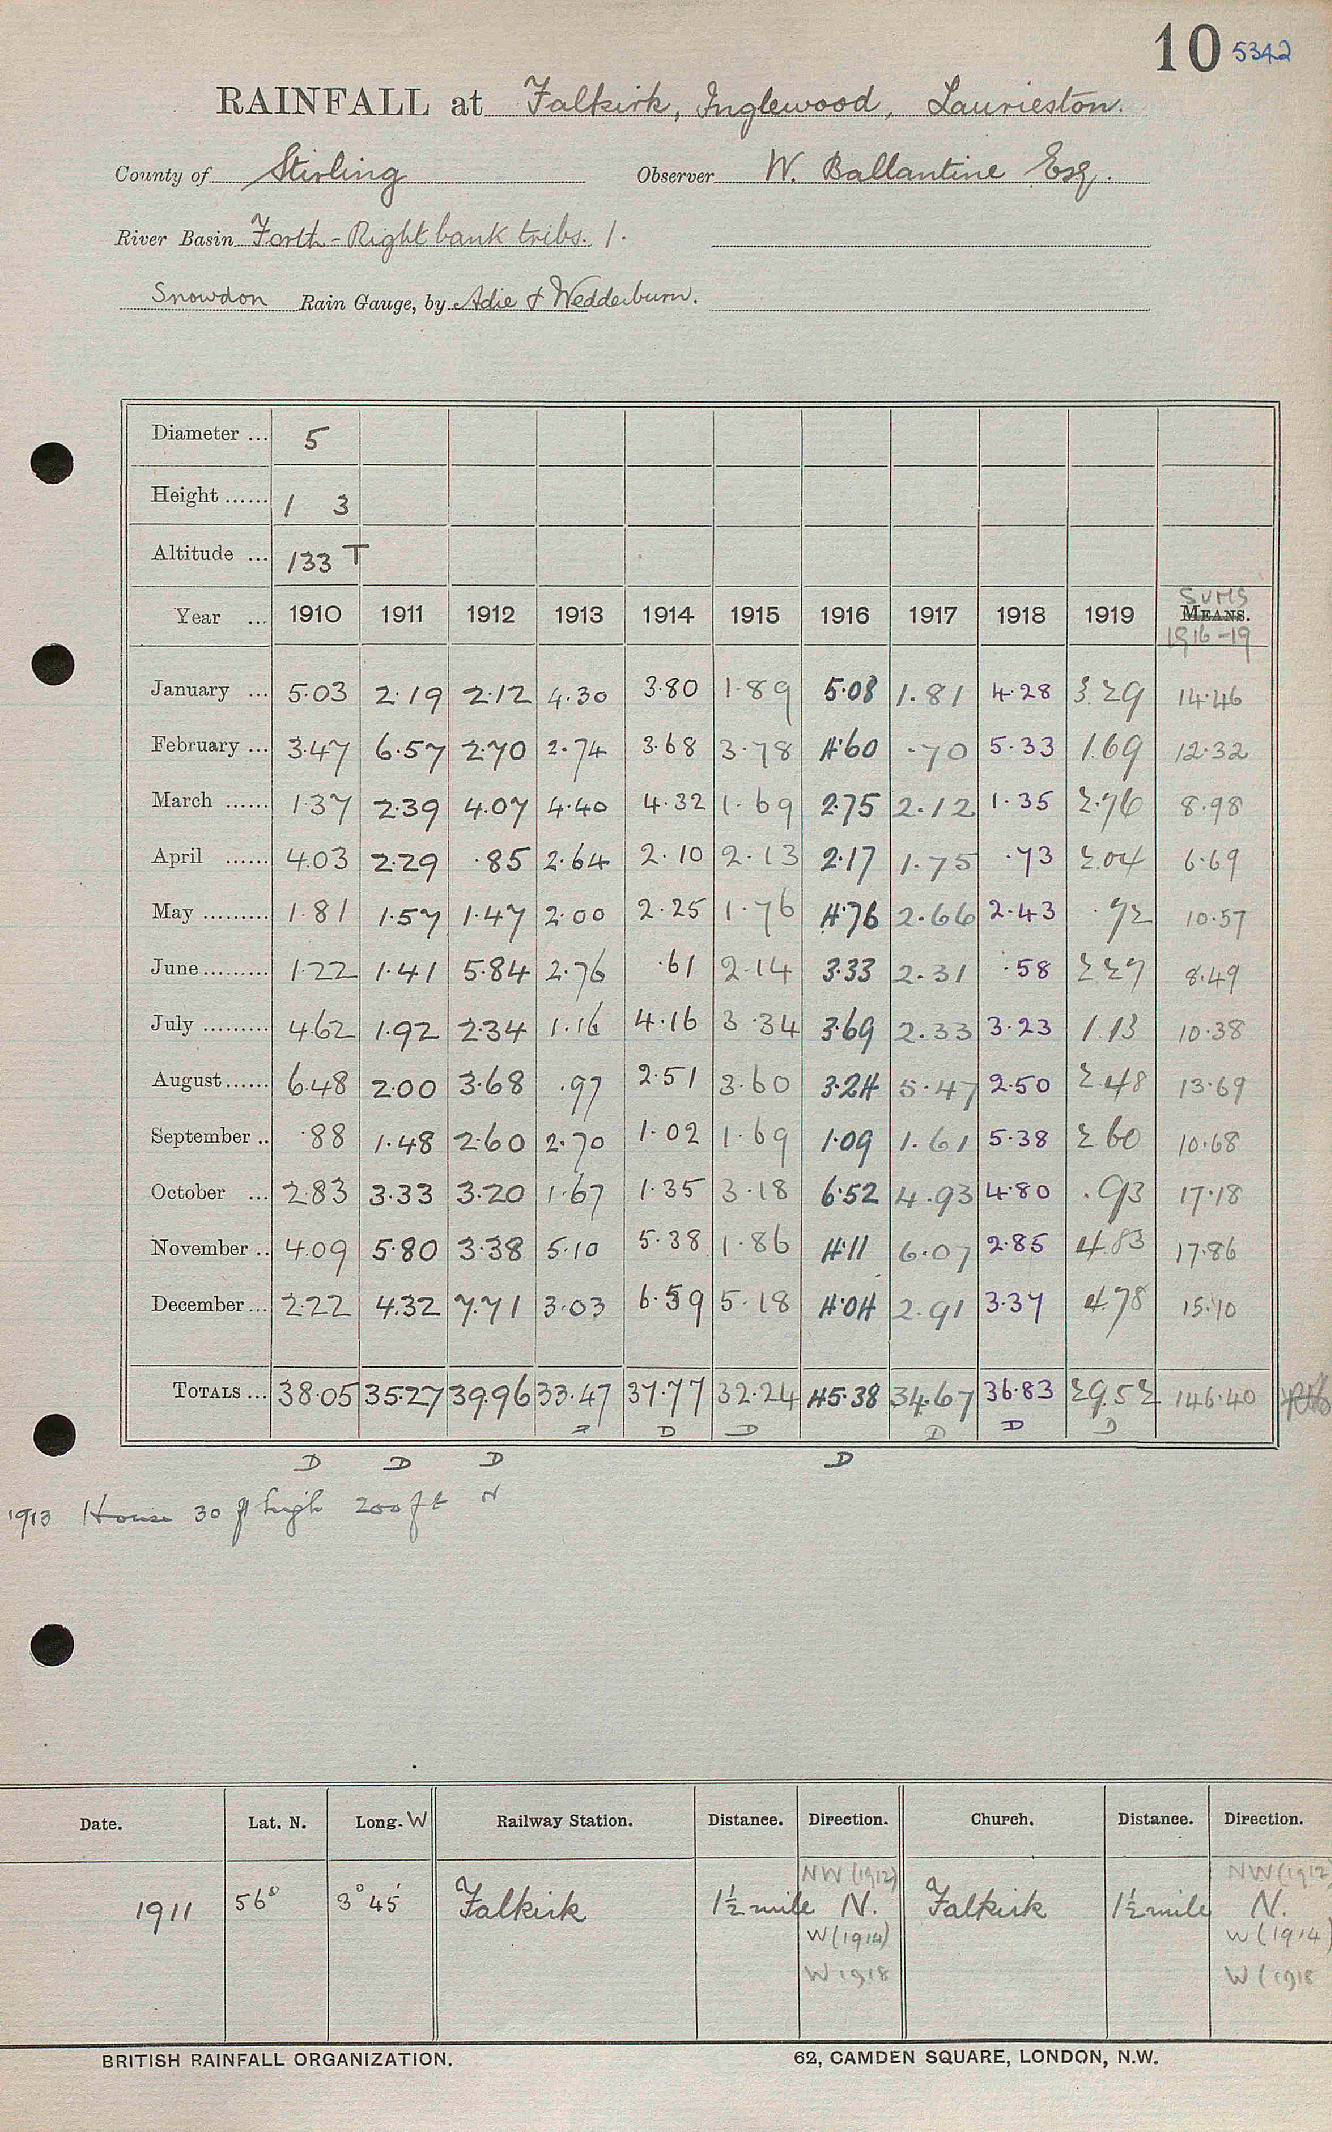 10 5342
RAINFALL at Falkirk, Inglewood, Laurieston.
County of Stirling Observer W. Ballantine Esq.
River Basin Forth - Right bank tribs. 1.
Snowdon Rain Gauge, by Adie & Wedderburn.
Diameter ... 5
Height ...... 1 3
Altitude ... 133 T
SUMS
Year ... 1910 1911 1912 1913 1914 1915 1916 1917 1918 1919 MEANS.
1916-19
January ... 5.03 2.19 2.12 4.30 3.80 1.89 5.08 1.81 4.28 3.29 14.46
February ... 3.47 6.57 2.70 2.74 3.68 3.78 4.60 .70 5.33 1.69 12.32
March ...... 1.37 2.39 4.07 4.40 4.32 1.69 2.75 2.12 1.35 2.76 8.98
April ...... 4.03 2.29 .85 2.64 2.10 2.13 2.17 1.75 .73 2.04 6.69
May ......... 1.81 1.57 1.47 2.00 2.25 1.76 4.76 2.66 2.43 .72 10.57
June ......... 1.22 1.41 5.84 2.76 .61 2.14 3.33 2.31 .58 2.27 8.49
July ......... 4.62 1.92 2.34 1.16 4.16 3.34 3.69 2.33 3.23 1.13 10.38
August ...... 6.48 2.00 3.68 .97 2.51 3.60 3.24 5.47 2.50 2.48 13.69
September .. .88 1.48 2.60 2.70 1.02 1.69 1.09 1.61 5.38 2.60 10.68
October ... 2.83 3.33 3.20 1.67 1.35 3.18 6.52 4.93 4.80 .93 17.18
November .. 4.09 5.80 3.38 5.10 5.38 1.86 4.11 6.07 2.85 4.83 17.86
December ... 2.22 4.32 7.71 3.03 6.59 5.18 4.04 2.91 3.37 4.78 15.10
TOTALS ... 38.05 35.27 39.96 33.47 37.77 32.24 45.38 34.67 36.83 29.52 146.40
D D D D D
D D D D
1913 House 30 ft high 200 ft N
Date. Lat. N. Long. W Railway Station. Distance. Direction. Church. Distance. Direction.
NW (1912) NW (1912)
1911 56° 3° 45' Falkirk 1½ mile N. Falkirk 1½ mile N.
W (1914) W (1914)
W 1918 W (1918
BRITISH RAINFALL ORGANIZATION. 62, CAMDEN SQUARE, LONDON, N.W.